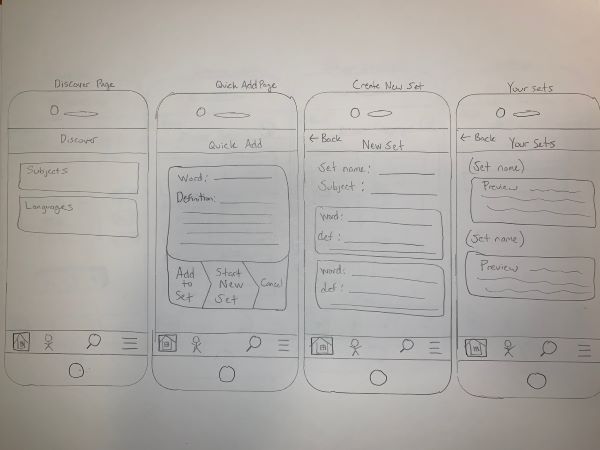 Discover Page
Discover
Subjects
Languages
Quick Add Page
Quick Add
Word:
Definition:
Add
to
Set
Start
New
Set
Cancel
Create New Set
← Back
New Set
Set name:
Subject:
Word:
def:
Word:
def:
Your sets
← Back
Your Sets
(Set name)
Preview
(Set name)
Preview